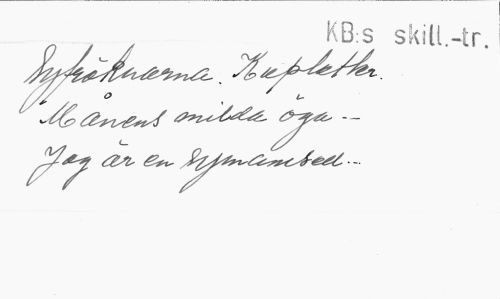 KB:s skill.-tr.
Syfröknarna. Kupletter.
Månens milda öga --
Jag är en symamsell --